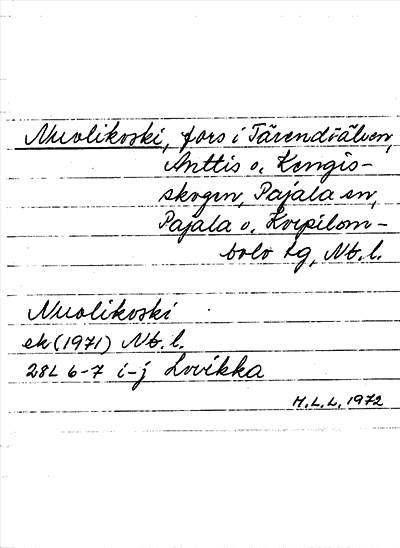 Nuolikoski, fors i Tärendöälven,
Anttis o. Kengis-
skogen, Pajala sn,
Pajala o. Korpilom-
bolo tg, Nb. l.
Nuolikoski
ek (1971) Nb. l.
28L 6-7 i-j Lovikka
M.L.L. 1972